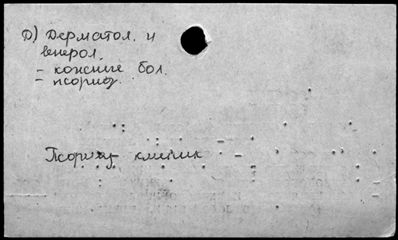 Д) Дерматол. и
венерол.
- кожные бол.
- псориаз.
Псориаз клиник